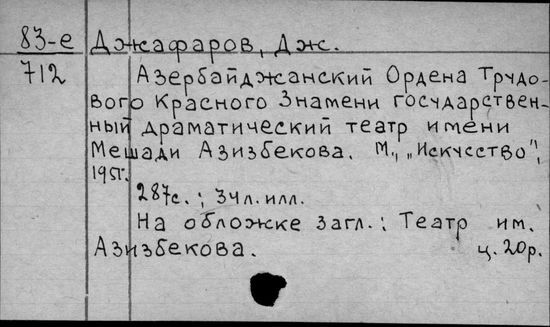 83-е Джафаров, Дж.
712 Азербайджанский Ордена Трудо-
вого Красного Знамени государствен-
ный драматический театр имени
Мешади Азизбекова. М., „Искусство",
1951.
287с.; 34л.илл.
На обложке загл.: Театр им.
Азизбекова. ц. 20р.